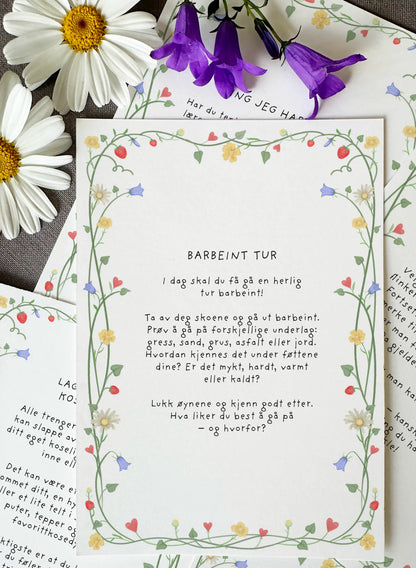 NG JEG HAR
Har du
BARBEINT TUR
I dag skal du få gå en herlig
tur barbeint!
Ta av deg skoene og gå ut barbeint.
Prøv å gå på forskjellige underlag:
gress, sand, grus, asfalt eller jord.
Hvordan kjennes det under føttene
dine? Er det mykt, hardt, varmt
eller kaldt?
Lukk øynene og kjenn godt etter.
Hva liker du best å gå på
– og hvorfor?
LAG
KOS
Alle trenger
kan slappe av
ditt eget koseli
inne ell
Det kan være e
rommet ditt, en hy
eller et lite telt i
puter, tepper og
favorittkosed
iktigste er at du